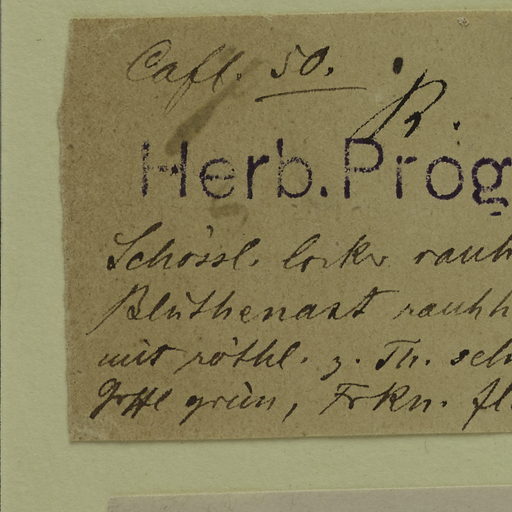 Cafl. 50. R.
Herb. Prog
Schössl. locker rauh
Blüthenast rauhh
mit röthl. z. Th. sch
Grffl grün, Frkn. fl